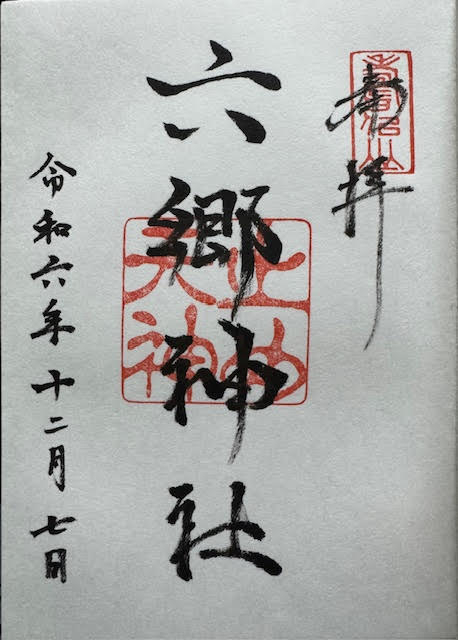 奉拝
六郷神社
令和六年十二月七日